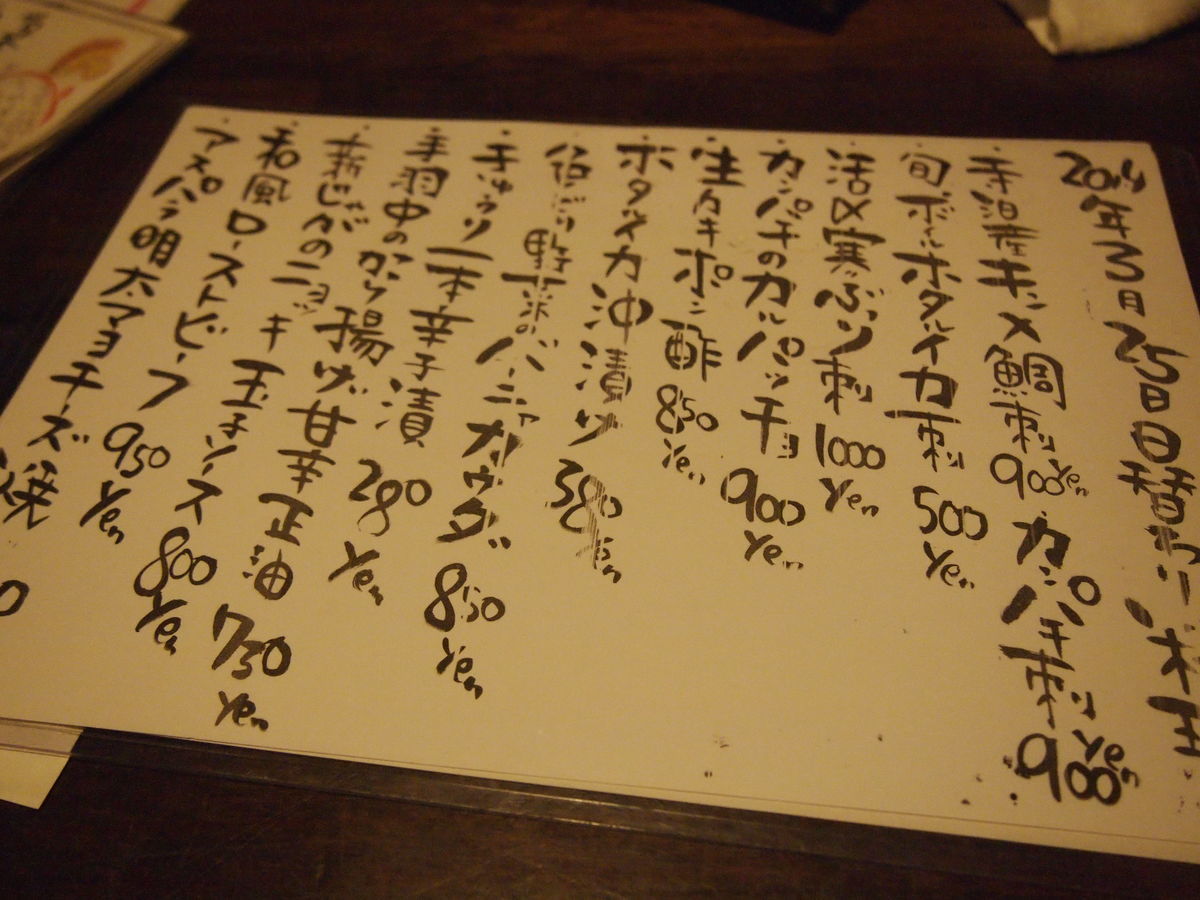 2014年3月25日 日替わり
・寺泊産キンメ鯛刺 900yen カンパチ刺 900yen
・旬ボイルホタルイカ刺 500yen
・活〆寒ぶり刺 1000yen
・カンパチのカルパッチョ 900yen
・生カキポン酢 850yen
・ホタルイカ沖漬け 380yen
・野菜のバーニャカウダ 850yen
・きゅうり一本辛子漬 280yen
・手羽中のから揚げ甘辛正油 750yen
・新じゃがのニョッキ 玉子ソース 800yen
・和風ローストビーフ 950yen
・アスパラ明太マヨチーズ焼